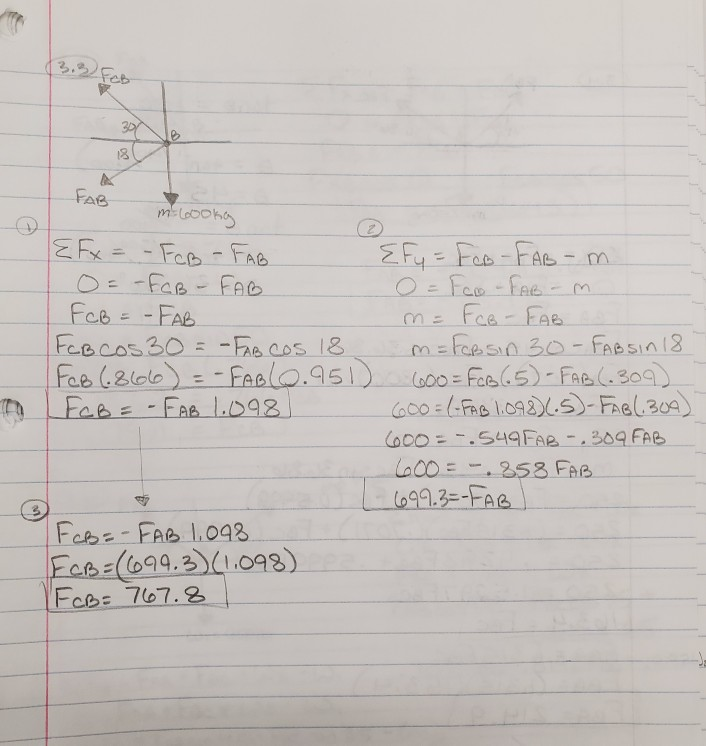 3.3
FCB
30
B
18
FAB
m=600kg
①
ΣFx = -FCB - FAB
0 = -FCB - FAB
FCB = -FAB
FCB cos 30 = -FAB cos 18
FCB (.866) = -FAB (0.951)
FCB = -FAB 1.098
②
ΣFy = FCB - FAB - m
0 = FCB - FAB - m
m = FCB - FAB
m = FCB sin 30 - FAB sin 18
600 = FCB(.5) - FAB(.309)
600 = (-FAB 1.098)(.5) - FAB(.309)
600 = -.549 FAB - .309 FAB
600 = -.858 FAB
699.3 = -FAB
③
FCB = -FAB 1.098
FCB = (699.3)(1.098)
FCB = 767.8